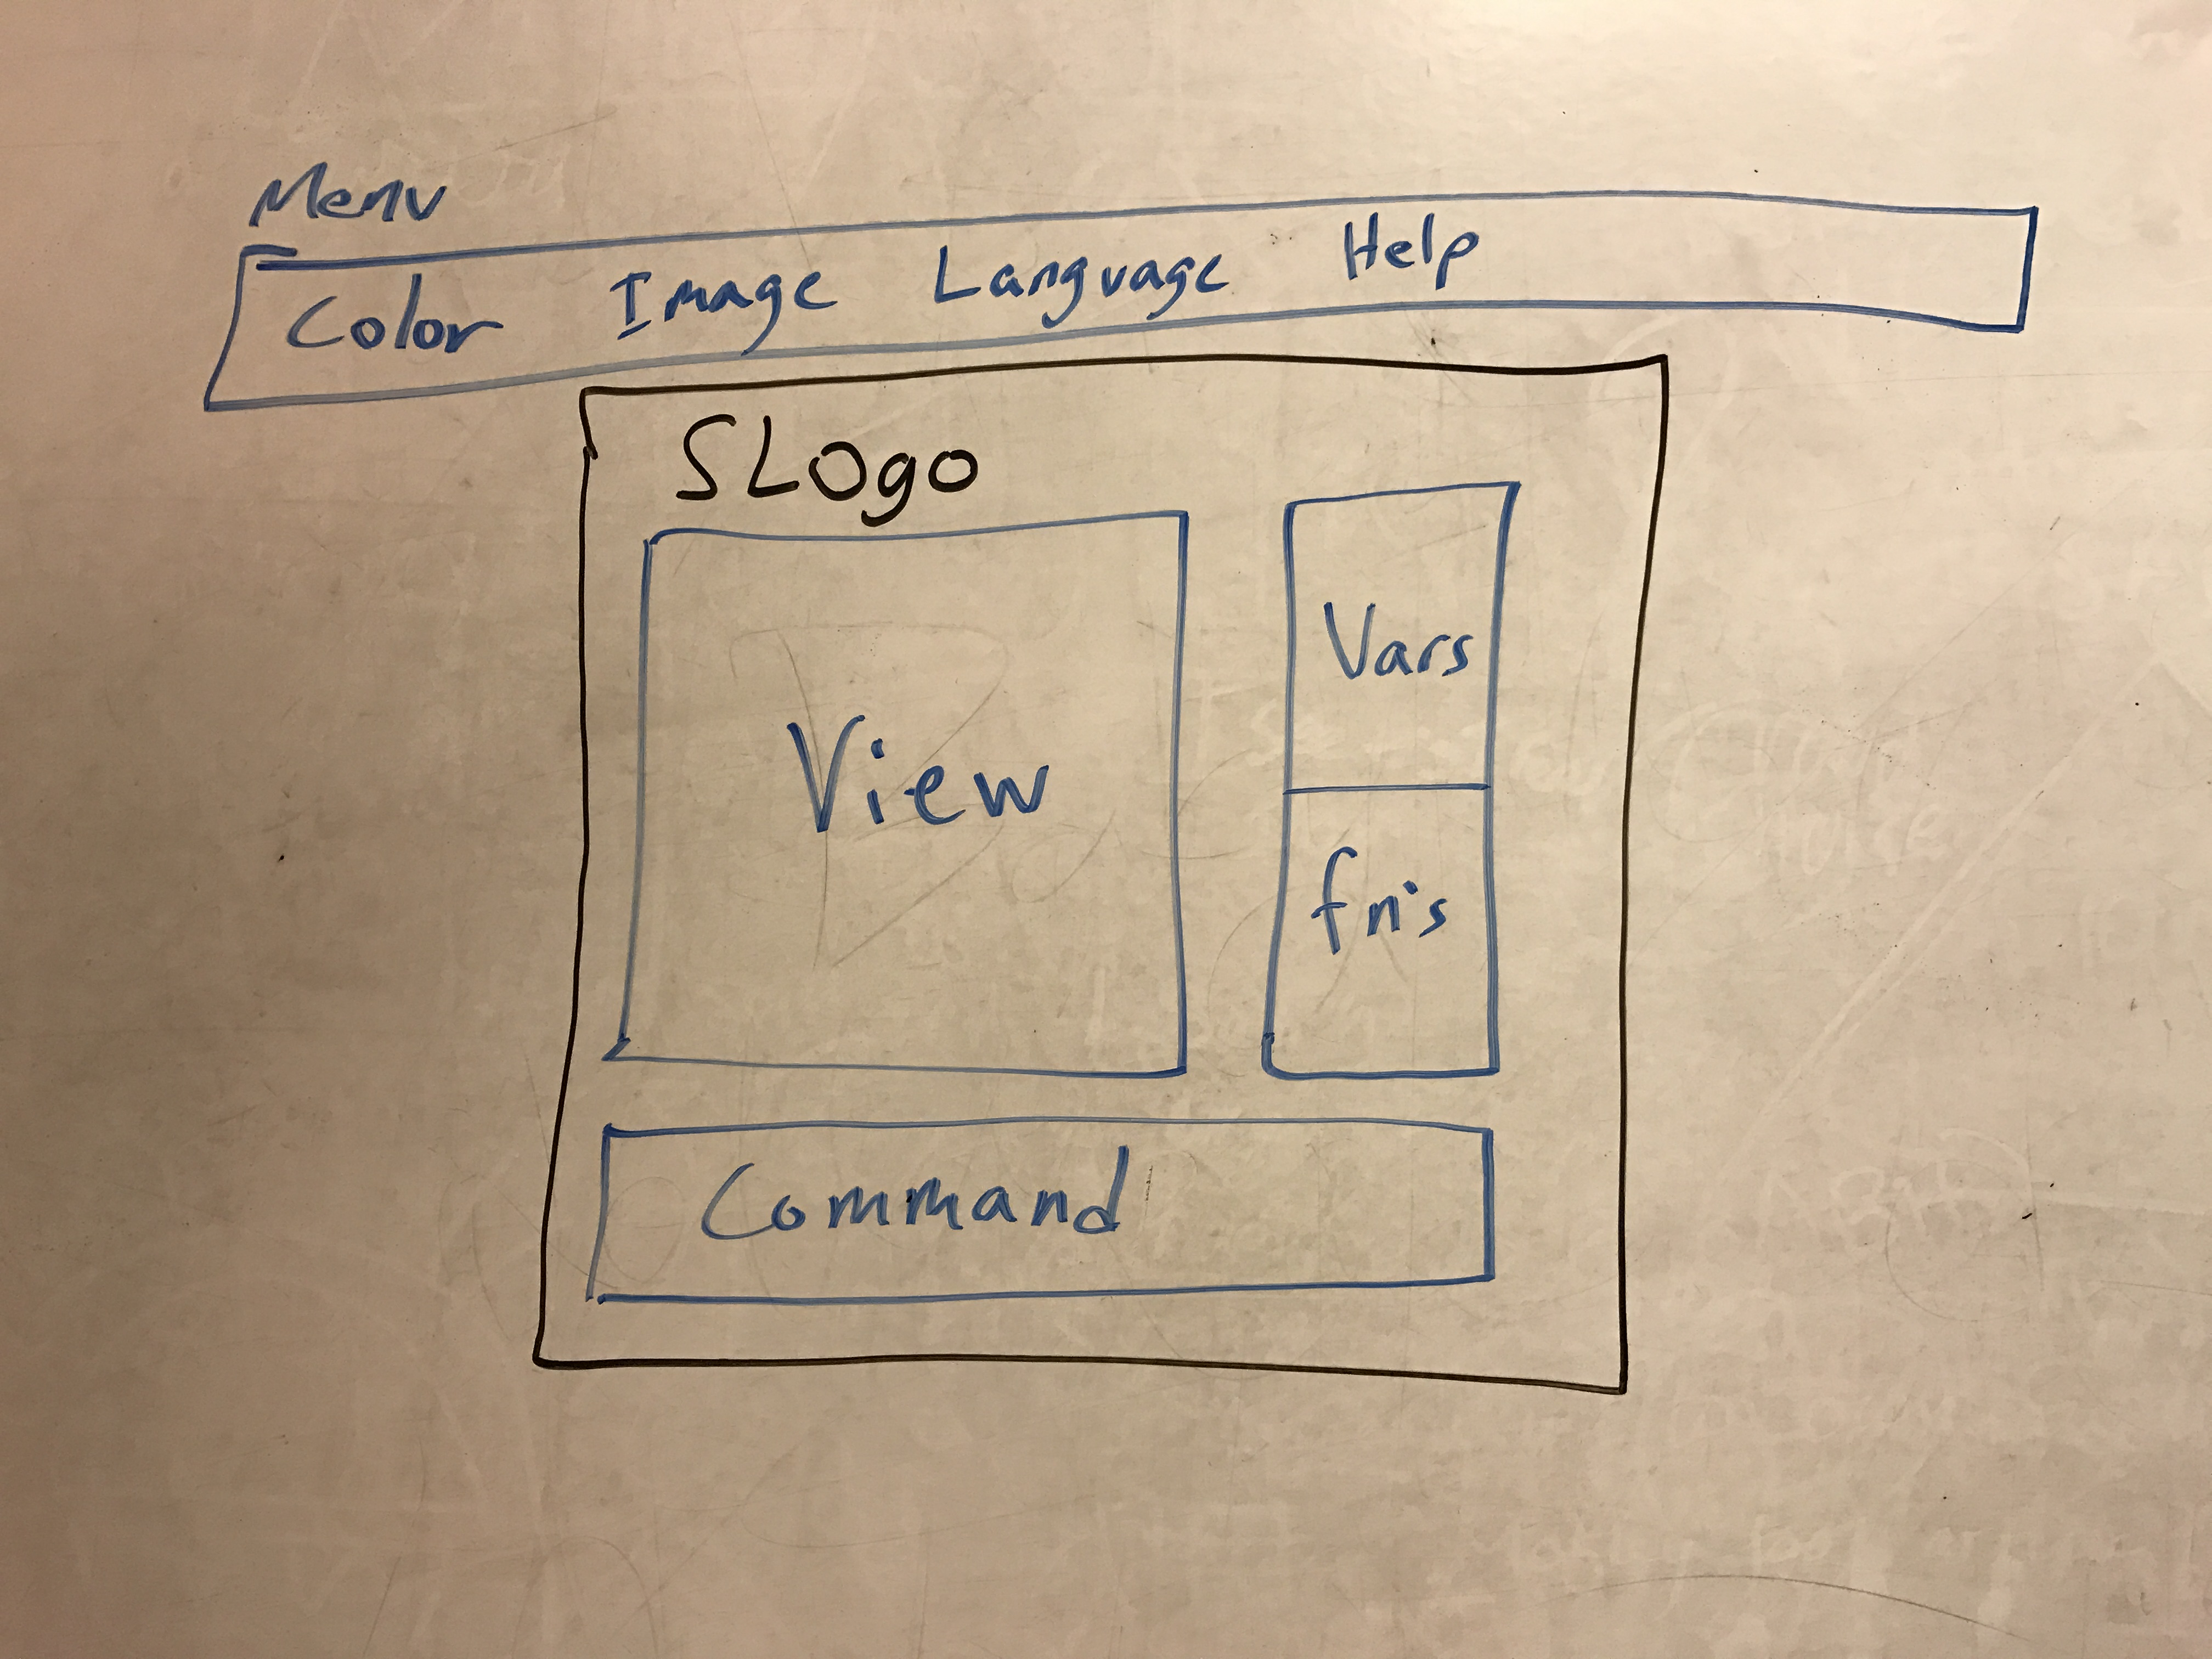 Menu
Color Image Language Help
SLOgo
Vars
View
fn's
Command